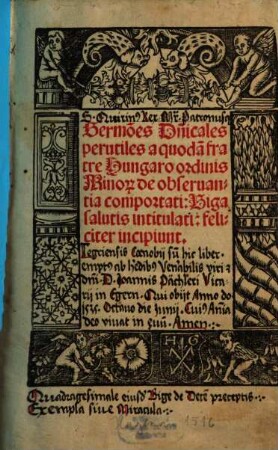 S. Quirin⁹ Rex Mr. Patronus
Sermões Dñicales
perutiles a quodã fra
tre Hungaro ordinis
Minorꝝ de obseruan
tia comportati: Biga
salutis intitulati: feli
citer incipiunt.
Tegriēsis Cœnobij sũ hic liber.
emptꝰ ab
Venabilis viri et
Dñi. D. Joannis Pächleri Vica
rij in Egern. Qui obijt Anno do
Octavo die Junij. Cuiꝰ Aĩa
deo vivat in
Amen.
H G
Quadragesimale eiusd̃ Bige de Decẽ preceptis.
Exempla sive Miracula.
1516